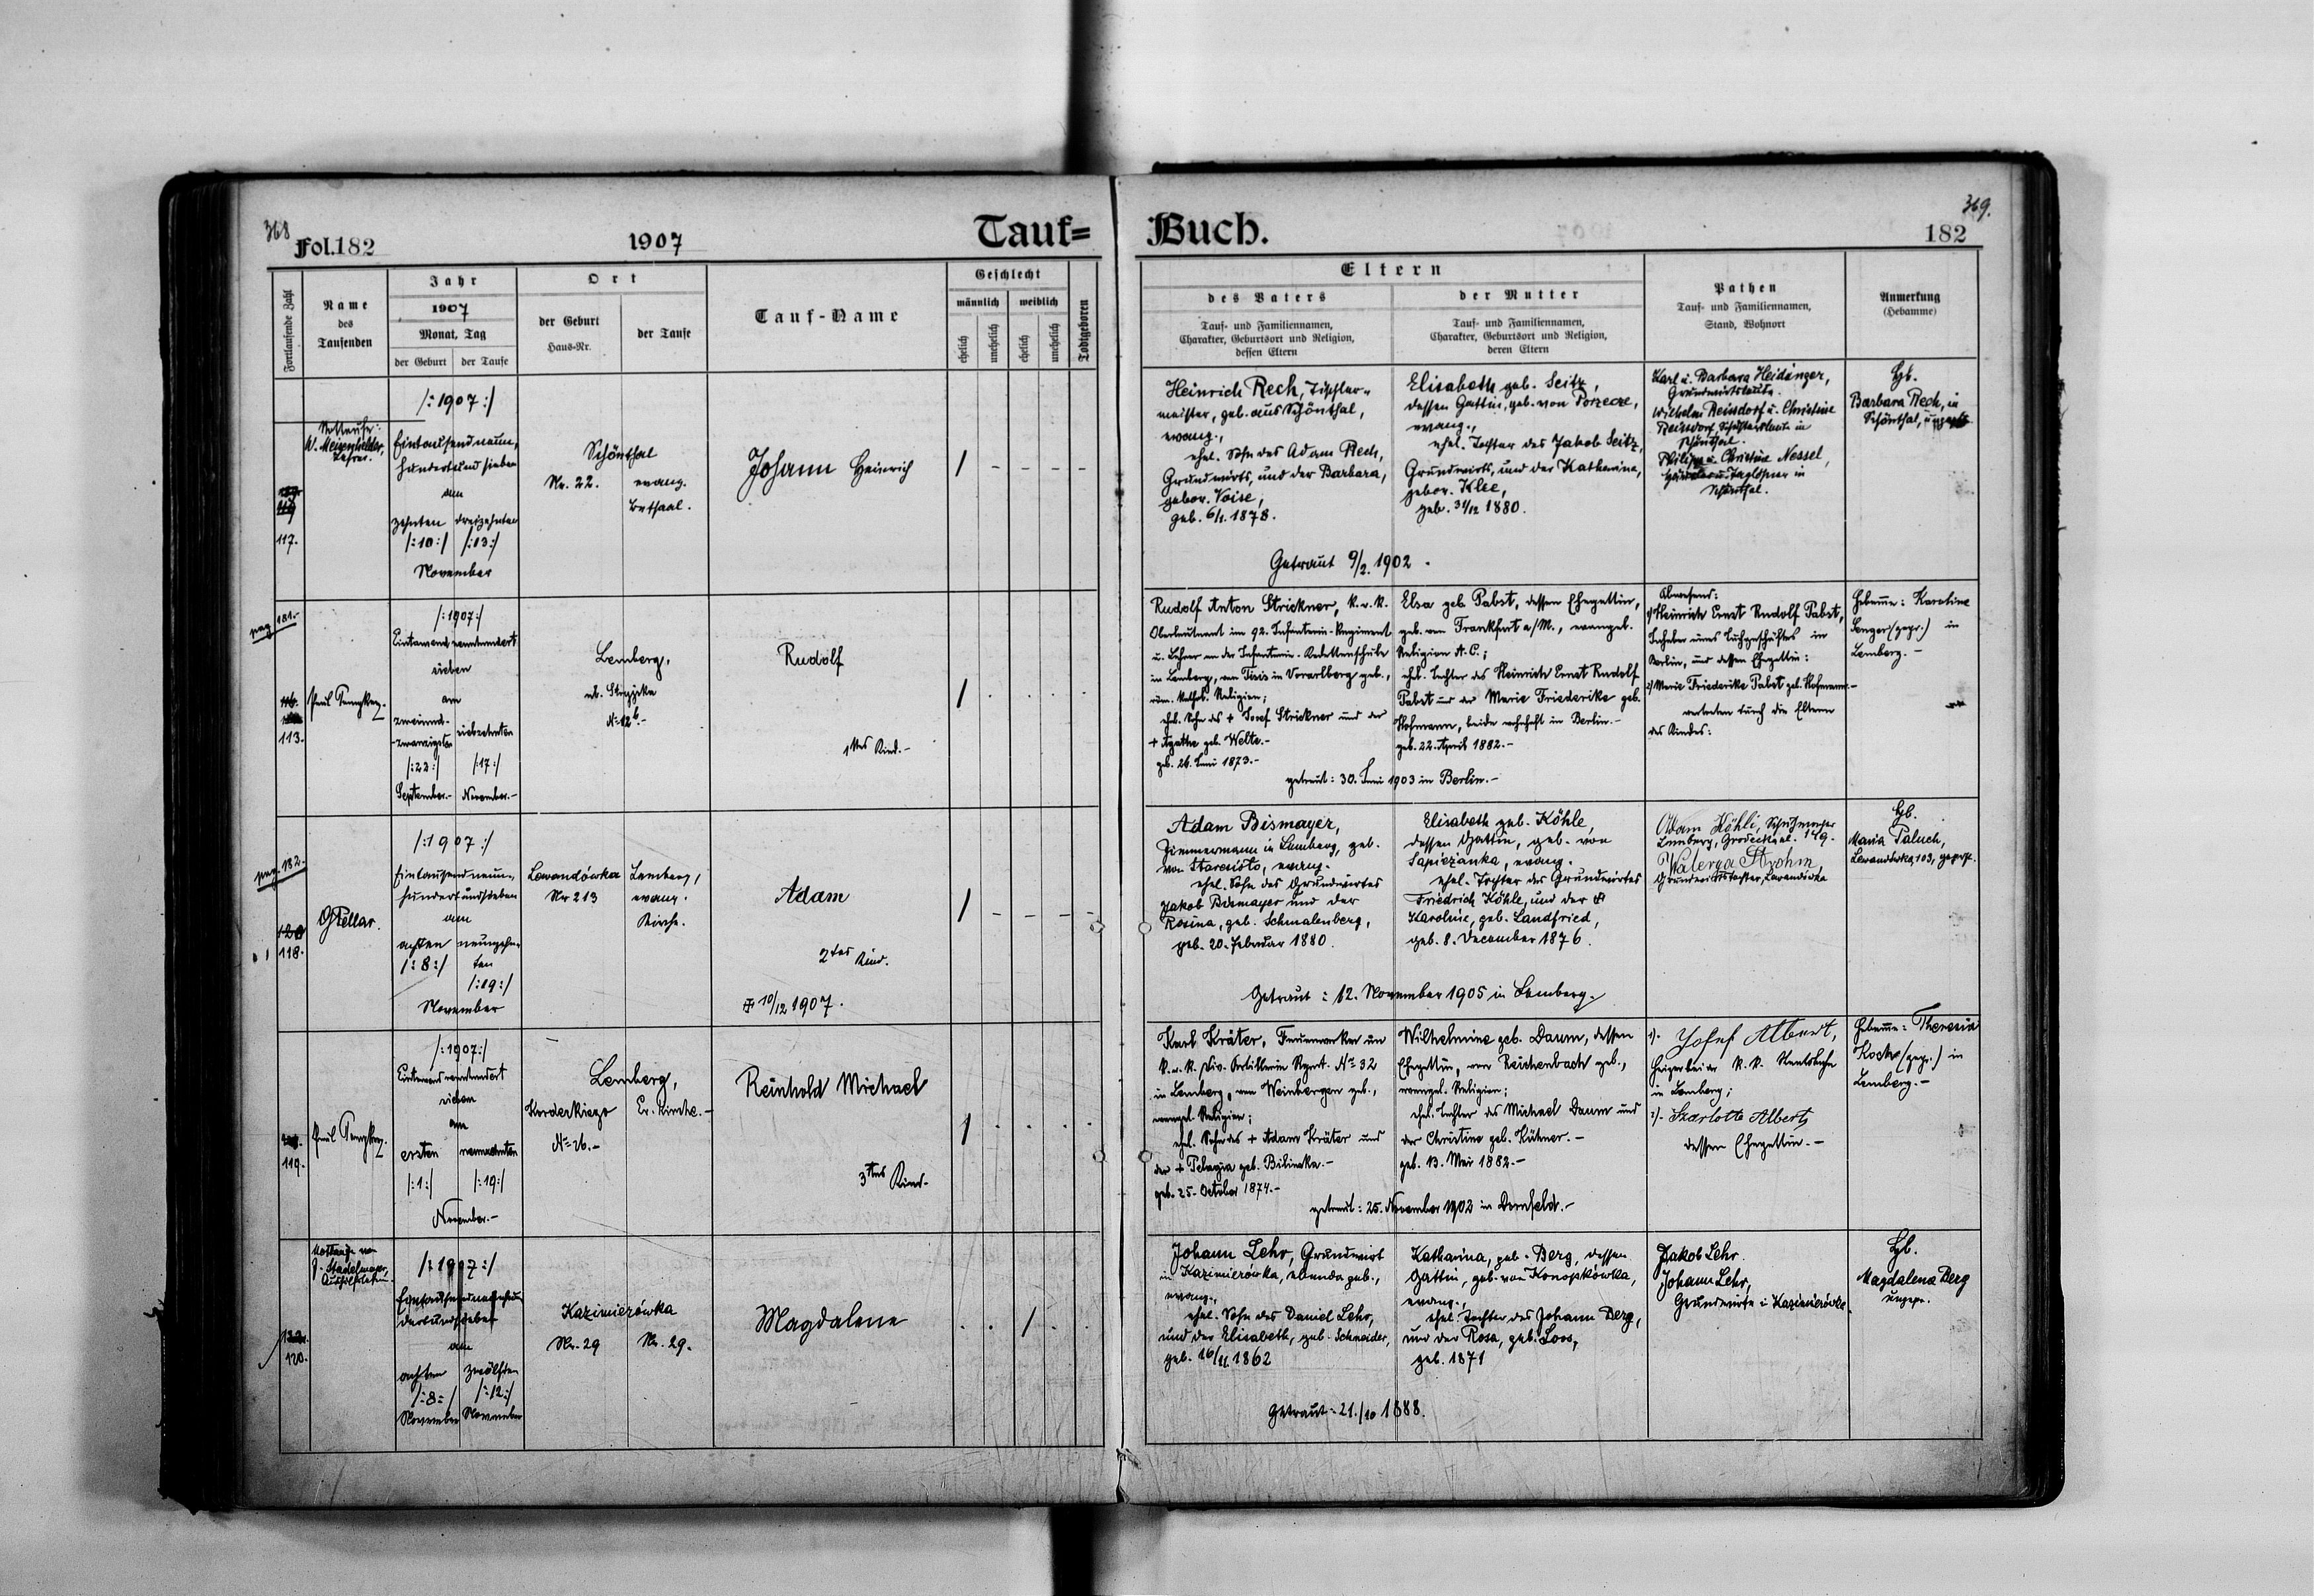 368
Fol. 182
1907
Tauf=
Fortlaufende Zahl
Name
des
Taufenden
Jahr
1907
Monat, Tag
der Geburt
der Taufe
Ort
der Geburt
Haus-Nr.
der Taufe
Tauf-Name
Geschlecht
männlich
weiblich
ehelich
unehelich
ehelich
unehelich
Todtgeboren
117.
Nottaufe:
Lehrer.
/:1907:/
Eintausendneun-
hundertundsieben
am
zehnten dreizehnten
/:10:/ /:13:/
November
Schönthal
Nr. 22. evang.
Bethaal.
Johann Heinrich
/ - - - -
pag 181.
113.
/:1907:/
Eintausendneunhundert
sieben
am
zweiund-
zwanzigsten siebzehnten
/:22:/ /:17:/
September.- November.-
Lemberg,
ul. Stryjska
No 12b.-
Rudolf
1tes Kind.-
/ . . . .
pag. 182.
118.
/:1907:/
Eintausendneun-
hundertundsieben
am
achten neunzehn-
/:8:/ ten
/:19:/
November
Lewandówka Lemberg,
Nr 213 evang.
Kirche.
Adam
2tes Kind.
10/12 1907.
/ - - - -
119.
/:1907:/
Eintausendneunhundert
sieben
am
ersten neunzehnten
/:1:/ /:19:/
November.-
Lemberg,
Ev. Kirche.-
No 26.-
Reinhold Michael
3tes Kind.-
/ . . . .
120.
Nottaufe von
J. Stadelmayer,
/:1907:/
am
achten zwölften
/:8:/ /:12:/
November November
Kazimierówka
Nr. 29 Nr. 29.
Magdalene
. . / . .
369.
Buch.
182
Eltern
des Vaters
Tauf- und Familiennamen,
Charakter, Geburtsort und Religion,
dessen Eltern
der Mutter
Tauf- und Familiennamen,
Charakter, Geburtsort und Religion,
deren Eltern
Pathen
Tauf- und Familiennamen,
Stand, Wohnort
Anmerkung
(Hebamme)
Heinrich Rech, Tischler-
meister, geb. aus Schönthal,
evang.,
ehel. Sohn des Adam Rech,
Grundwirts, und der Barbara,
gebor. Voise,
geb. 6/1. 1878.
Elisabeth geb. Seitz,
dessen Gattin, geb. von Porzecze,
evang.,
ehel. Tochter des Jakob Seitz,
Grundwirts, und der Katharina,
gebor. Klee,
geb. 31/12 1880.
Getraut 9/2. 1902.
Karl u. Barbara Heidinger,
Grundwirtsleute.
Wilhelm Reisdorf u. Christine
Reisdorf, in
Schönthal.
Philipp u. Christine Nessel,
Taglöhner in
Schönthal.
Hb.
Barbara Rech, in
Schönthal, ungepr.
Rudolf Anton Strickner, k. u. k.
Oberleutnant im 92. Infanterie-Regiment
u. Lehrer an der Infanterie-Kadettenschule
in Lemberg, von Tisis in Vorarlberg geb.,
röm. kathol. Religion;
ehel. Sohn des + Josef Strickner und der
+ Agathe geb. Welte.-
geb. 26. Juni 1873.-
Elsa geb. Pabst, dessen Ehegattin,
geb. von Frankfurt a/M., evangel.
Religion A.C.;
ehel. Tochter des Heinrich Ernst Rudolf
Pabst und der Marie Friederike geb.
Hofmann, beide wohnhaft in Berlin.-
geb. 22. April 1882.-
getraut: 30. Juni 1903 in Berlin.-
Abwesend:
1) Heinrich Ernst Rudolf Pabst,
Inhaber eines Tuchgeschäftes in
Berlin, und dessen Ehegattin:
2) Marie Friederike Pabst geb. Hofmann.-
vertreten durch die Eltern
des Kindes:
Hebamme: Karoline
Senger (gepr.) in
Lemberg.-
Adam Bismayer,
Zimmermann in Lemberg, geb.
von Staresioło, evang.
ehel. Sohn des Grundwirtes
Jakob Bismayer und der
Rosina, geb. Schmalenberg,
geb. 20. Februar 1880.
Elisabeth geb. Köhle,
dessen Gattin, geb. von
Sapieżanka, evang.
ehel. Tochter des Grundwirtes
Friedrich Köhle, und der
Karoline, geb. Landfried,
geb. 8. December 1876.
Getraut: 12. November 1905 in Lemberg.
Adam Köhli, Schuhmacher
Lemberg, 149.
Walerya Strohm,
Grundwirtstochter, Lewandówka
Hb.
Maria Paluch,
Lewandówka 103, geprf.
Karl Kräter, Feuerwerker im
k.u.k. Div. Artillerie Regmt. No 32
in Lemberg, von Weinbergen geb.,
evangel. Religion;
ehel. Sohn des + Adam Kräter und
der + Pelagia geb. Bilinska.-
geb. 25. October 1874.-
Wilhelmine geb. Daum, dessen
Ehegattin, von Reichenbach geb.,
evangel. Religion;
ehel. Tochter des Michael Daum und
der Christine geb. Kühner.-
geb. 13. Mai 1882.-
getraut: 25. November 1902 in Dornfeld.-
1). Josef Albert,
Heizer bei der k.k. Staatsbahn
in Lemberg;
2). Szarlotte Albert,
dessen Ehegattin.-
Hebamme: Theresia
Koch (gepr.) in
Lemberg.-
Johann Lehr, Grundwirt
in Kazimierówka, ebenda geb.,
evang.,
ehel. Sohn des Daniel Lehr,
und der Elisabeth, geb. Schneider,
geb. 16/11. 1862
Katharina, geb. Berg, dessen
Gattin, geb. von Konopkówka,
evang.,
ehel. Tochter des Johann Berg,
und der Rosa, geb. Loos,
geb. 1871
Getraut: 21./10 1888.
Jakob Lehr.
Johann Lehr,
Grundwirte in Kazimierówka.
Hb.
Magdalena Berg
ungepr.